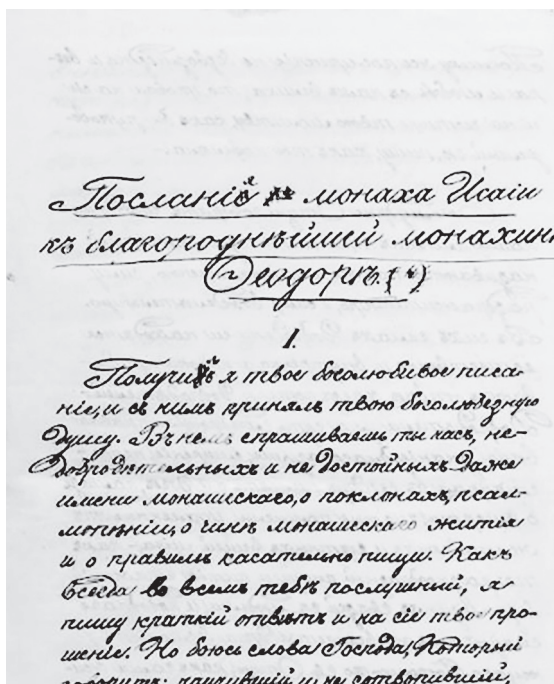 Посланія монаха Исаіи
къ благороднѣйшей монахинѣ
Ѳеодорѣ. (*)
I.
Получилъ я твое боголюбивое писа-
ніе, и съ нимъ принялъ твою боголюбезную
душу. Въ немъ спрашиваешь ты насъ, не-
добродѣтельныхъ и не достойныхъ даже
имени монашескаго, о поклонахъ, псал-
мопѣніи, о чинѣ монашескаго житія
и о правилѣ касательно пищи. Какъ
всегда во всемъ тебѣ послушный, я
пишу краткій отвѣтъ и на сіе твое про-
шеніе. Но боюсь слова Господа, Который
говоритъ: научившій и не сотворившій,